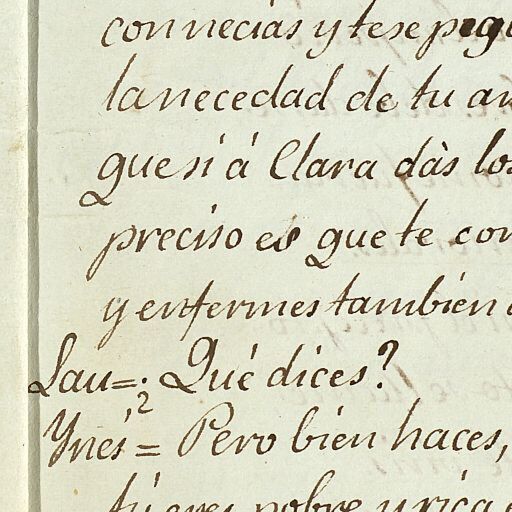 con necias y te se peg
la necedad de tu a
que si á Clara dàs lo
preciso es que te co
y enfermes también
Lau=. ¿Qué dices?
Ynés = Pero bien haces,
tú eres pobre y rica